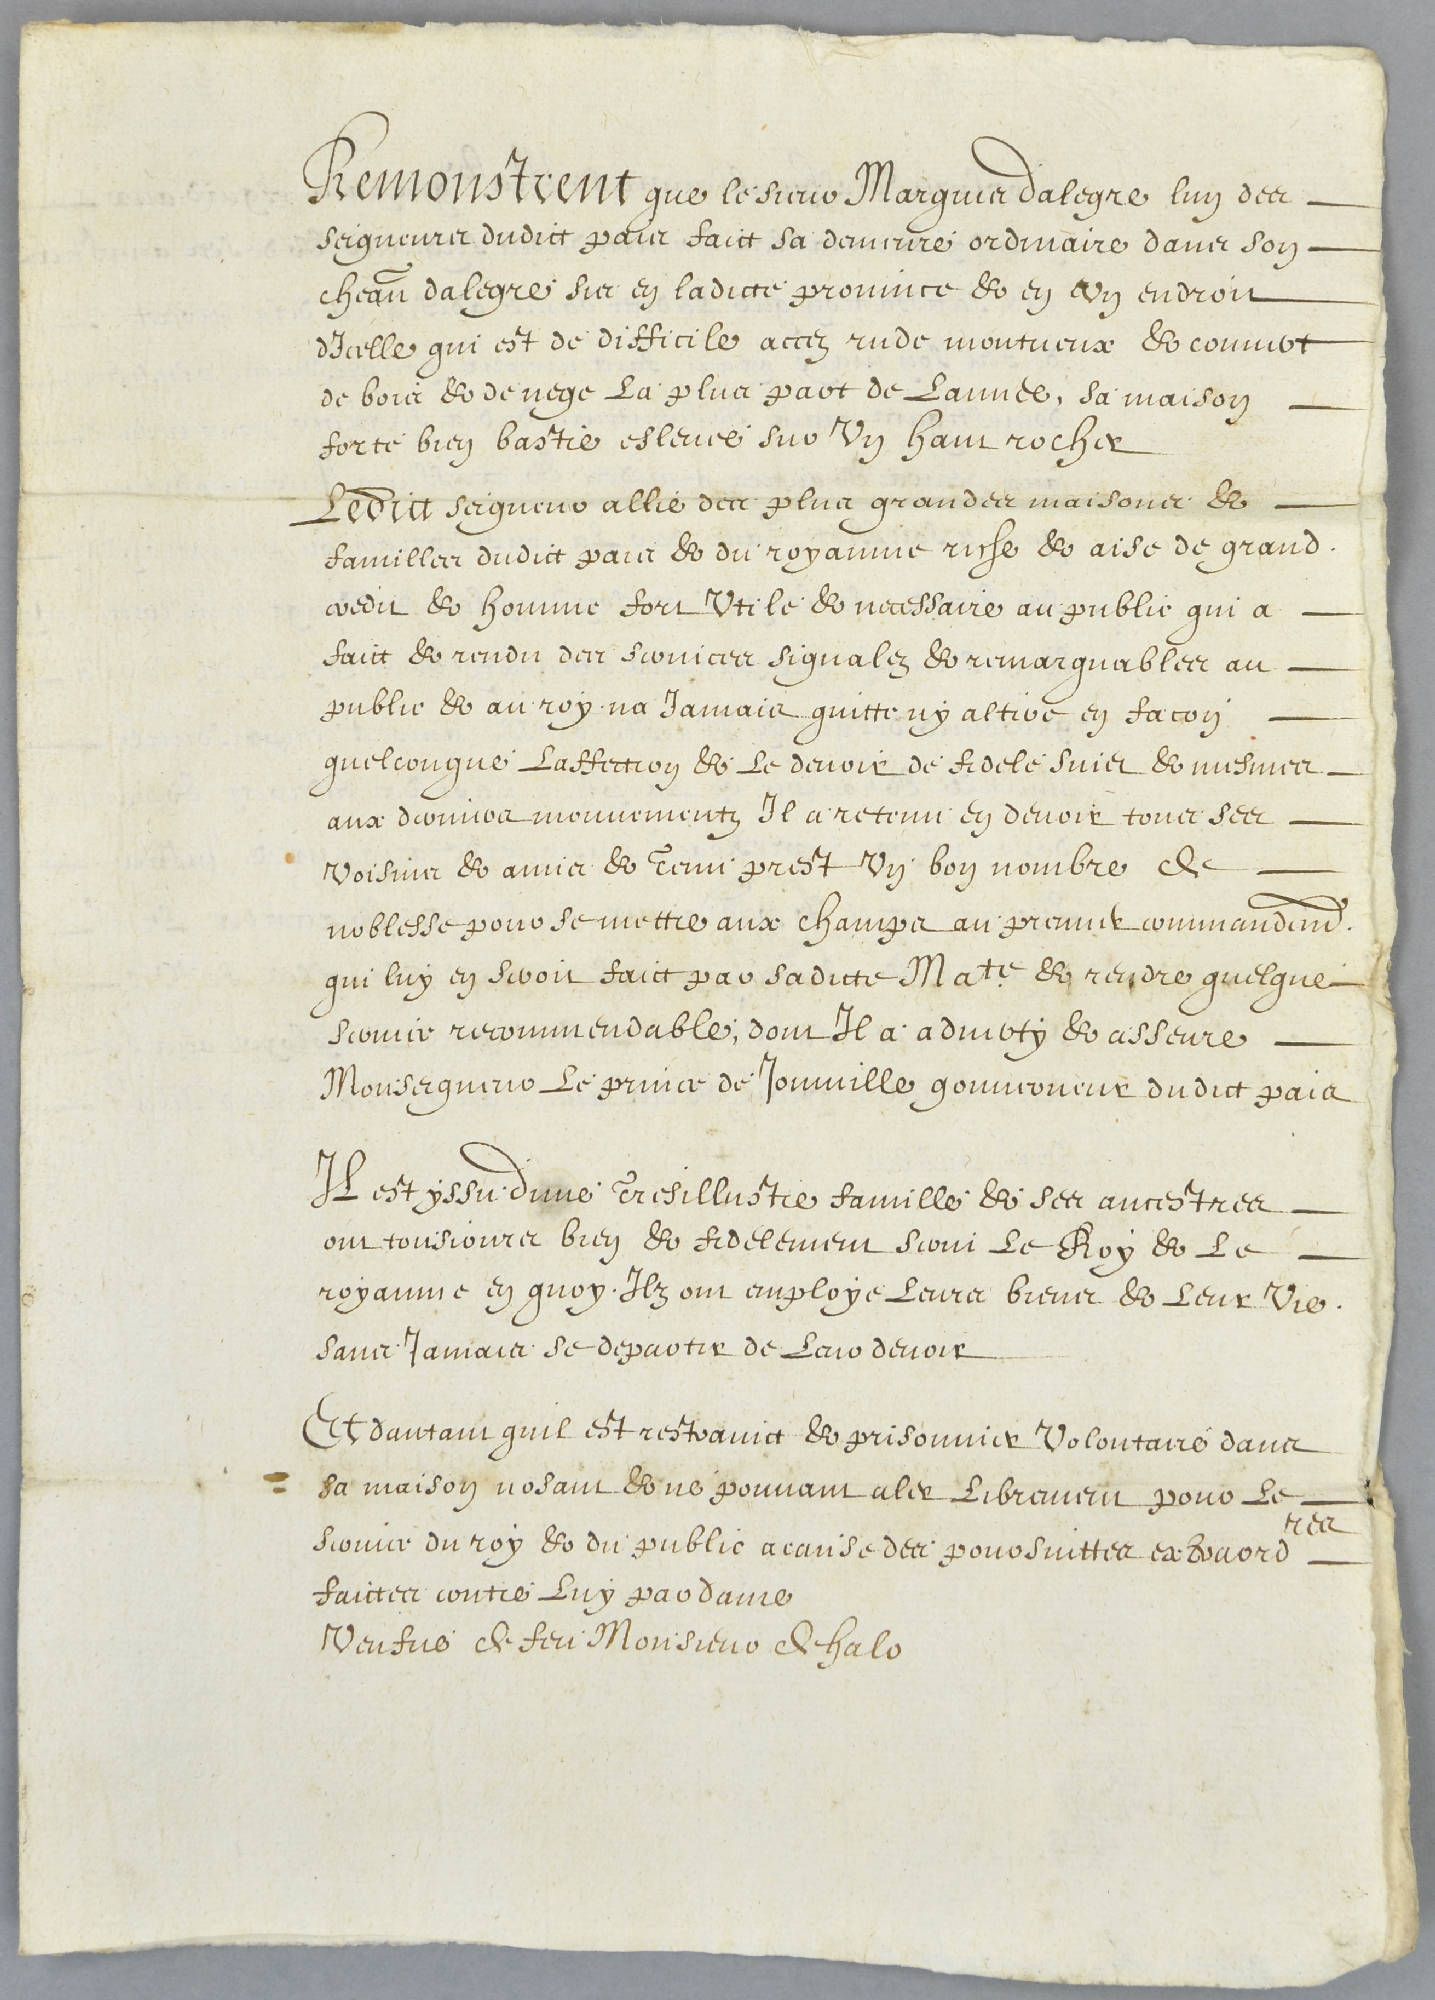 Remonstrent que le sieur Marquis dalegre lun des
seigneurs dudict pais faict sa demeure ordinaire dans son
cheau dalegre sis en ladicte province & en un endroit
dIcelle qui est de difficile accez rude montueux & couuert
de bois & de nege La plus part de Lannee, sa maison
forte bien bastie esleuee sur Vn haut rocher
Ledict seigneur allie des plus grandes maisons &
familles dudict pais & du royaume riche & aise de grand
credit & homme fort Vtile & necessaire au public qui a
faict & rendu des seruices signalez & remarquables au
public & au roy na Jamais quitte ny altere en facon
quelconque Laffection & Le deuoir de fidele suiet & mesmes
aux derniers mouuementz Il a retenu en deuoir tous ses
Voisins & amis & tenu prest Vn bon nombre de
noblesse pour se mettre aux champs au premier commandemt.
qui luy en seroit faict par sadicte Mate. & rendre quelque
seruice recommendable, dont Il a aduerty & asseure
Monseigneur Le prince de Joinuille gouuerneur dudict pais
Il est yssu dune tresillustre famille & ses ancestres
ont tousiours bien & fidelement serui Le Roy & Le
royaume en quoy Ilz ont employe Leurs biens & Leur Vie.
sans Jamais se departir de Leur deuoir
Et dautant quil est restrainct & prisonnier Volontaire dans
sa maison nosant & ne pouuant aler Librement pour Le
seruice du roy & du public a cause des poursuittes extraordres
faictes contre Luy par dame
Veufue de feu Monsieur de halo